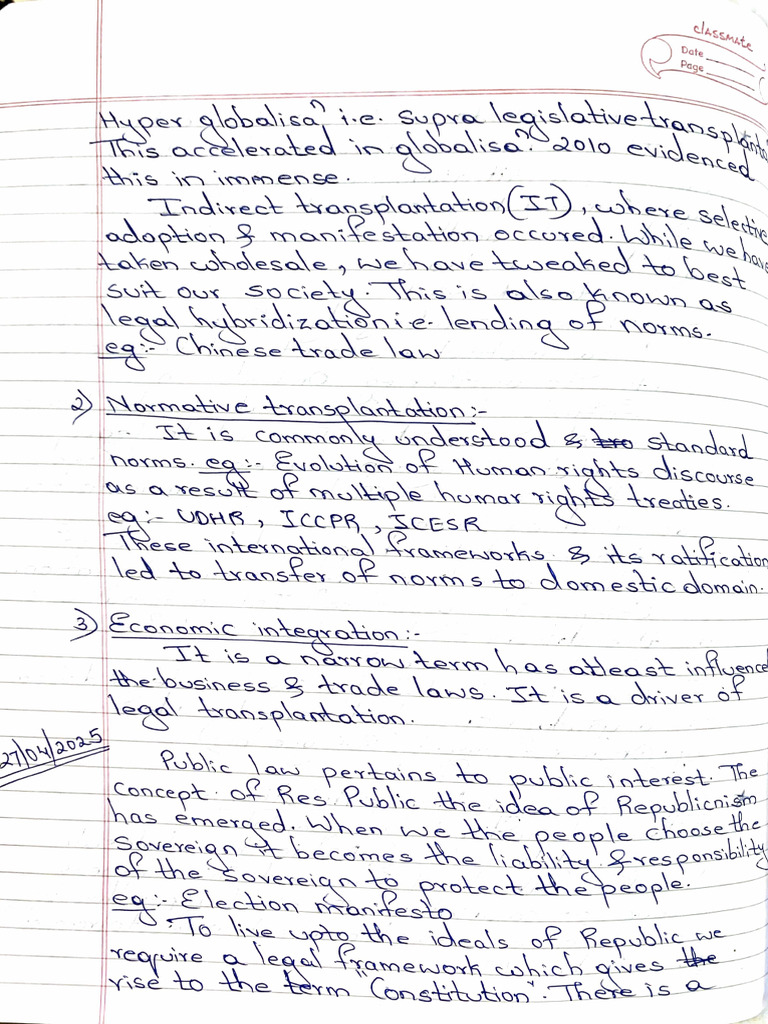 classmate
Date
Page
Hyper globalisaⁿ i.e. supra legislative transplanta
This accelerated in globalisaⁿ. 2010 evidenced
this in immense.
Indirect transplantation (IT), where selective
adoption & manifestation occured. While we have
taken wholesale, we have tweaked to best
suit our society. This is also known as
legal hybridization i.e. lending of norms.
eg:- Chinese trade law
2) Normative transplantation:-
It is commonly understood & standard
norms. eg:- Evolution of Human rights discourse
as a result of multiple human rights treaties.
eg:- UDHR, ICCPR, ICESR
These international frameworks & its ratification
led to transfer of norms to domestic domain.
3) Economic integration:-
It is a narrow term has atleast influence
the business & trade laws. It is a driver of
legal transplantation.
27/04/2025
Public law pertains to public interest. The
concept of Res Public the idea of Republicnism
has emerged. When we the people choose the
sovereign it becomes the liability & responsibility
of the sovereign to protect the people.
eg:- Election manifesto
To live upto the ideals of Republic we
require a legal framework which gives
rise to the term "Constitution". There is a